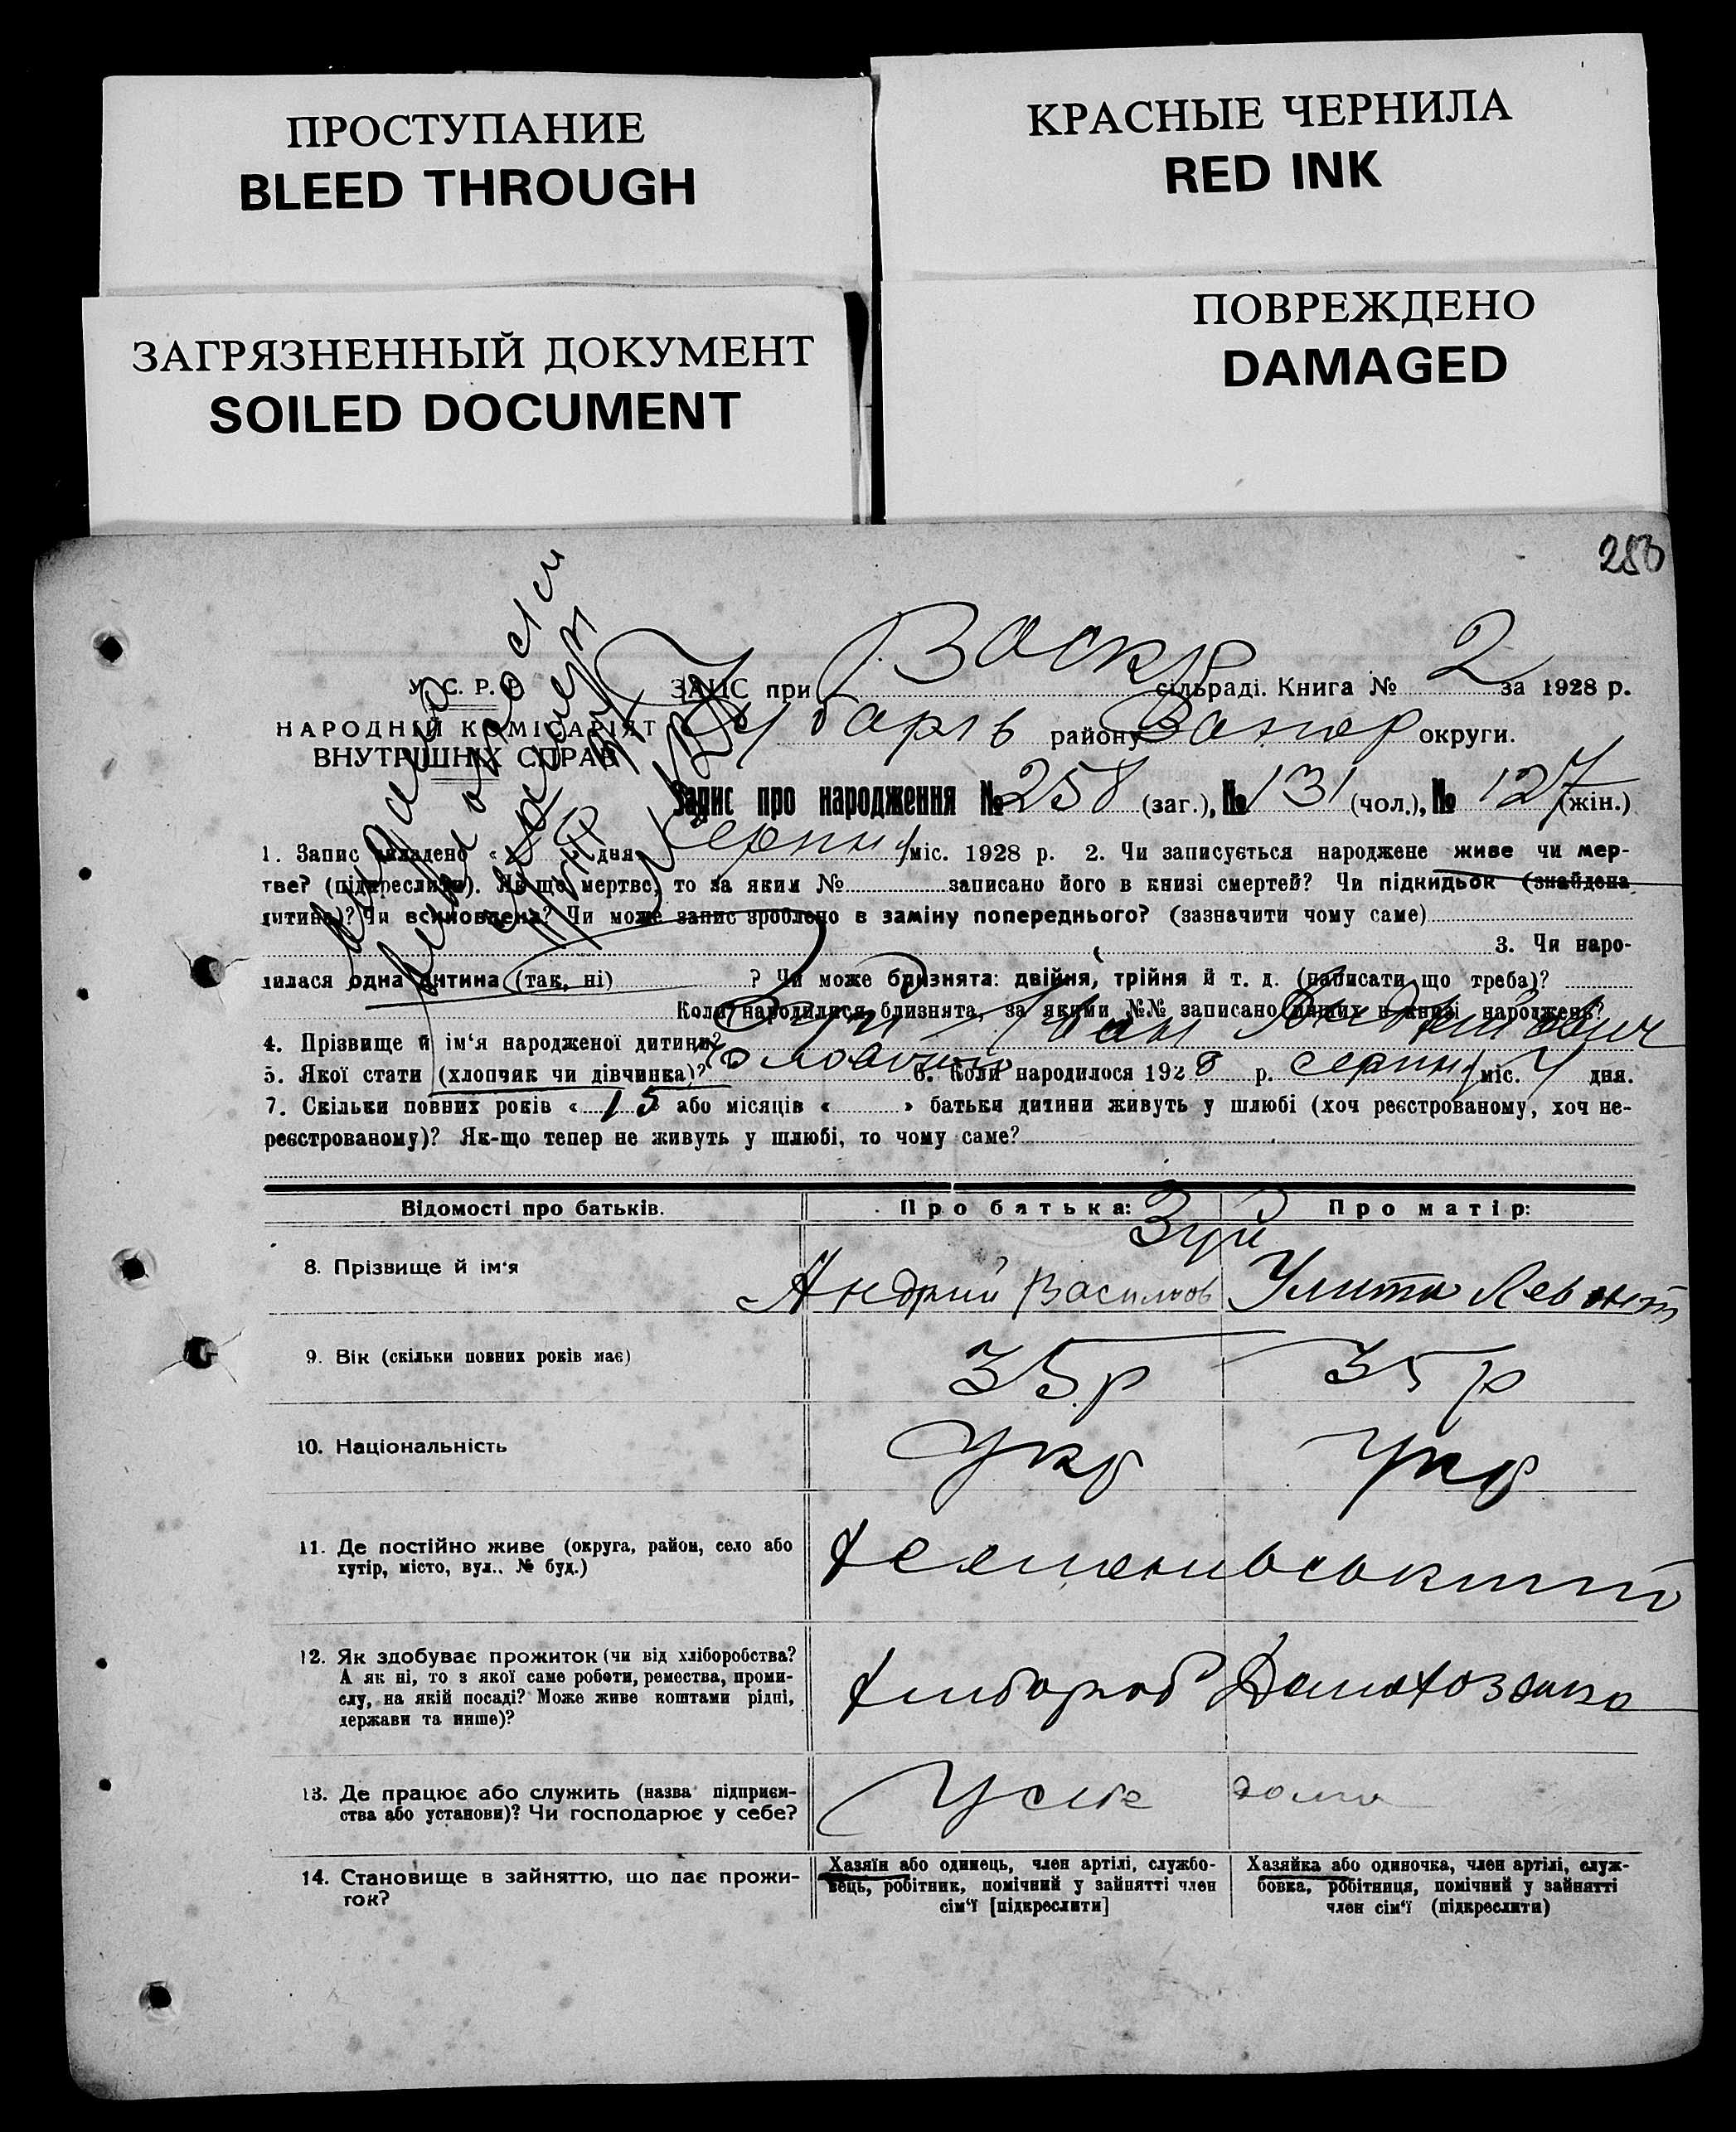 ПРОСТУПАНИЕ
BLEED THROUGH
КРАСНЫЕ ЧЕРНИЛА
RED INK
ЗАГРЯЗНЕННЫЙ ДОКУМЕНТ
SOILED DOCUMENT
ПОВРЕЖДЕНО
DAMAGED
У. С. Р. Р.
НАРОДНІЙ КОМІСАРІЯТ
ВНУТРІШНІХ СПРАВ
ЗАГС при Воскр сільраді. Книга № 2 за 1928 р.
району Запор округи.
Запис про народження № 258 (заг.), № 131 (чол.), № 127 (жін.)
1. Запис складено « » дня Серпня міс. 1928 р. 2. Чи записується народжене живе чи мер-
тве? (підкреслити). Як що мертве, то за яким № записано його в книзі смертей? Чи підкидьок (знайдена
дитина)? Чи всиновлена? Чи може запис зроблено в заміну попереднього? (зазначити чому саме)
3. Чи наро-
дилася одна дитина (так, ні) ? Чи може близнята: двійня, трійня й т. д. (написати що треба)?
Коли народилися близнята, за якими №№ записано інших в книзі народжень?
4. Прізвище й ім‘я народженої дитини? Зуй Іван Андрійович
5. Якої стати (хлопчик чи дівчинка)? 6. Коли народилося 1928 р. серпня міс. 4 дня.
7. Скільки повних років « 15 » або місяців « » батьки дитини живуть у шлюбі (хоч реєстрованому, хоч не-
реєстрованому)? Як-що тепер не живуть у шлюбі, то чому саме?
Відомості про батьків. Про батька: Про матір:
Зуй
8. Прізвище й ім‘я Андрий Васильов Улита Левонт
9. Вік (скільки повних років має) 35 р 35 р
10. Національність Укр Укр
11. Де постійно живе (округа, район, село або
хутір, місто, вул.. № буд.)
12. Як здобуває прожиток (чи від хліборобства?
А як ні, то з якої саме роботи, ремества, проми-
слу, на якій посаді? Може живе коштами рідні,
держави та инше)?
Хлибороб Домохозяйка
13. Де працює або служить (назва підприєм-
ства або установи)? Чи господарює у себе?
У себе дома
14. Становище в зайняттю, що дає прожи-
ток?
Хазяїн або одинець, член артілі, службо-
вець, робітник, помічний у зайнятті член
сім‘ї [підкреслити]
Хазяйка або одиночка, член артілі, служ-
бовка, робітниця, помічний у зайнятті
член сім‘ї (підкреслити)